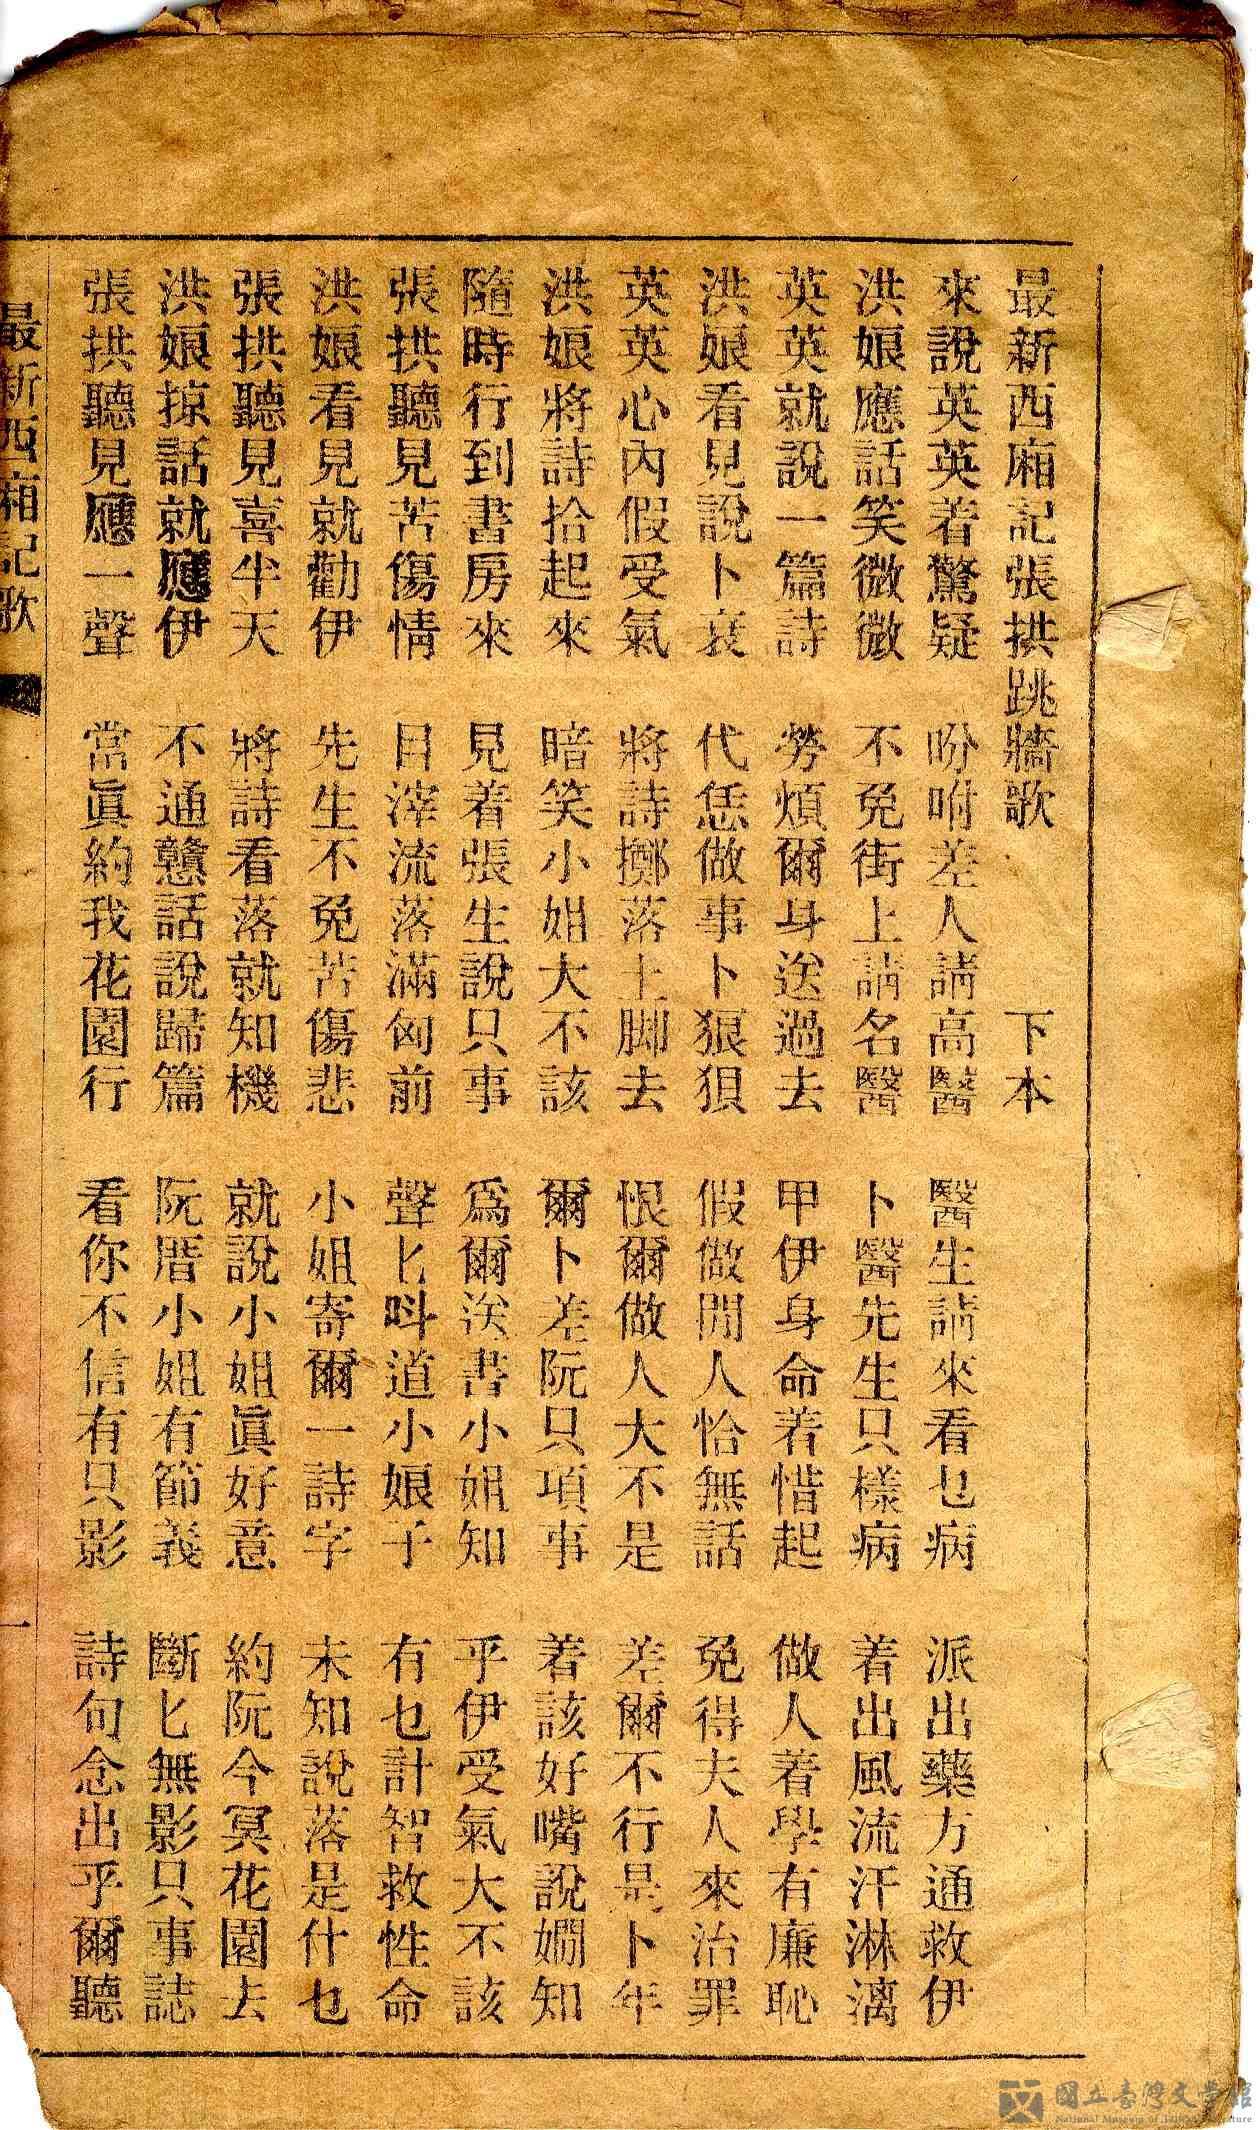 最新西廂記張拱跳牆歌　下本
來說英英着驚疑　吩咐差人請高醫　醫生請來看乜病　派出藥方通救伊
洪娘應話笑微微　不免街上請名醫　卜醫先生只樣病　着出風流汗淋漓
英英就說一篇詩　勞煩爾身送過去　甲伊身命着惜起　做人着學有廉恥
洪娘看見說卜衰　代恁做事卜狠狽　假做閒人恰無話　免得夫人來治罪
英英心內假受氣　將詩擲落土脚去　恨爾做人大不是　差爾不行是卜年
洪娘將詩拾起來　暗笑小姐大不該　爾卜差阮只項事　着該好嘴說嫺知
隨時行到書房來　見着張生說只事　為爾送書小姐知　乎伊受氣大不該
張拱聽見苦傷情　目滓流落滿匈前　聲匕呌道小娘子　有乜計智救性命
洪娘看見就勸伊　先生不免苦傷悲　小姐寄爾一詩字　未知說落是什乜
張拱聽見喜半天　將詩看落就知機　就說小姐眞好意　約阮今冥花園去
洪娘掠話就應伊　不通戇話說歸篇　阮厝小姐有節義　斷匕無影只事誌
張拱聽見應一聲　當眞約我花園行　看你不信有只影　詩句念出乎爾聽
最新西廂記歌
一
國立臺灣文學館
National Museum of Taiwan Literature